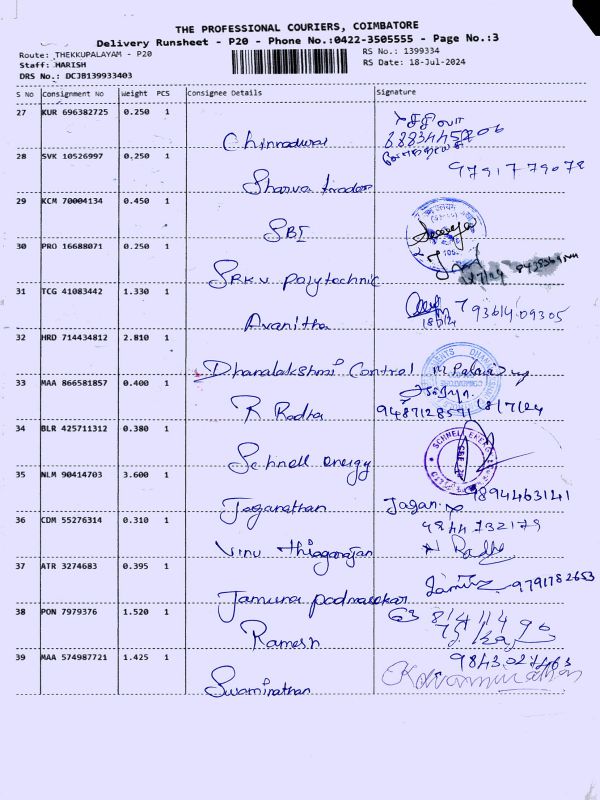 THE PROFESSIONAL COURIERS, COIMBATORE
Delivery Runsheet - P20 - Phone No.:0422-3505555 - Page No.:3
Route: THEKKUPALAYAM - P20
RS No.: 1399334
Staff: HARISH
RS Date: 18-Jul-2024
DRS No.: DCJB139933403
S No Consignment No Weight PCS Consignee Details Signature
27 KUR 696382725 0.250 1
Chinnadurai
28 SVK 10526997 0.250 1
9791779078
Sharva traders
29 KCM 70004134 0.450 1
SBI
30 PRO 16688071 0.250 1
SRKV Polytechnic
31 TCG 41083442 1.330 1
93614 09305
Avanitha
18/7/24
32 HRD 714434812 2.810 1
Dhanalakshmi Control
33 MAA 866581857 0.400 1
R Radha
9487128571 18/7/24
34 BLR 425711312 0.380 1
Schnell energy
35 NLM 90414703 3.600 1
9894463141
Jaganathan
Jagan
36 CDM 55276314 0.310 1
9844732179
Vinu Thiagarajan
Radhe
37 ATR 3274683 0.395 1
9791782653
Jamuna padmasekar
38 PON 7979376 1.520 1
Ramesh
39 MAA 574987721 1.425 1
Swaminathan